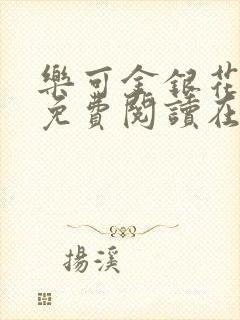 樂可金銀花
免費閱讀在
揚溪